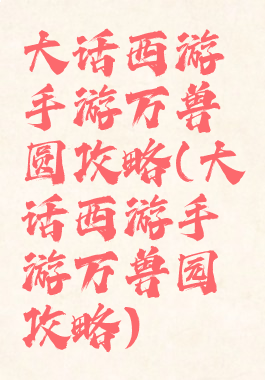 大话西游
手游万兽
圆攻略(大
话西游手
游万兽园
攻略)